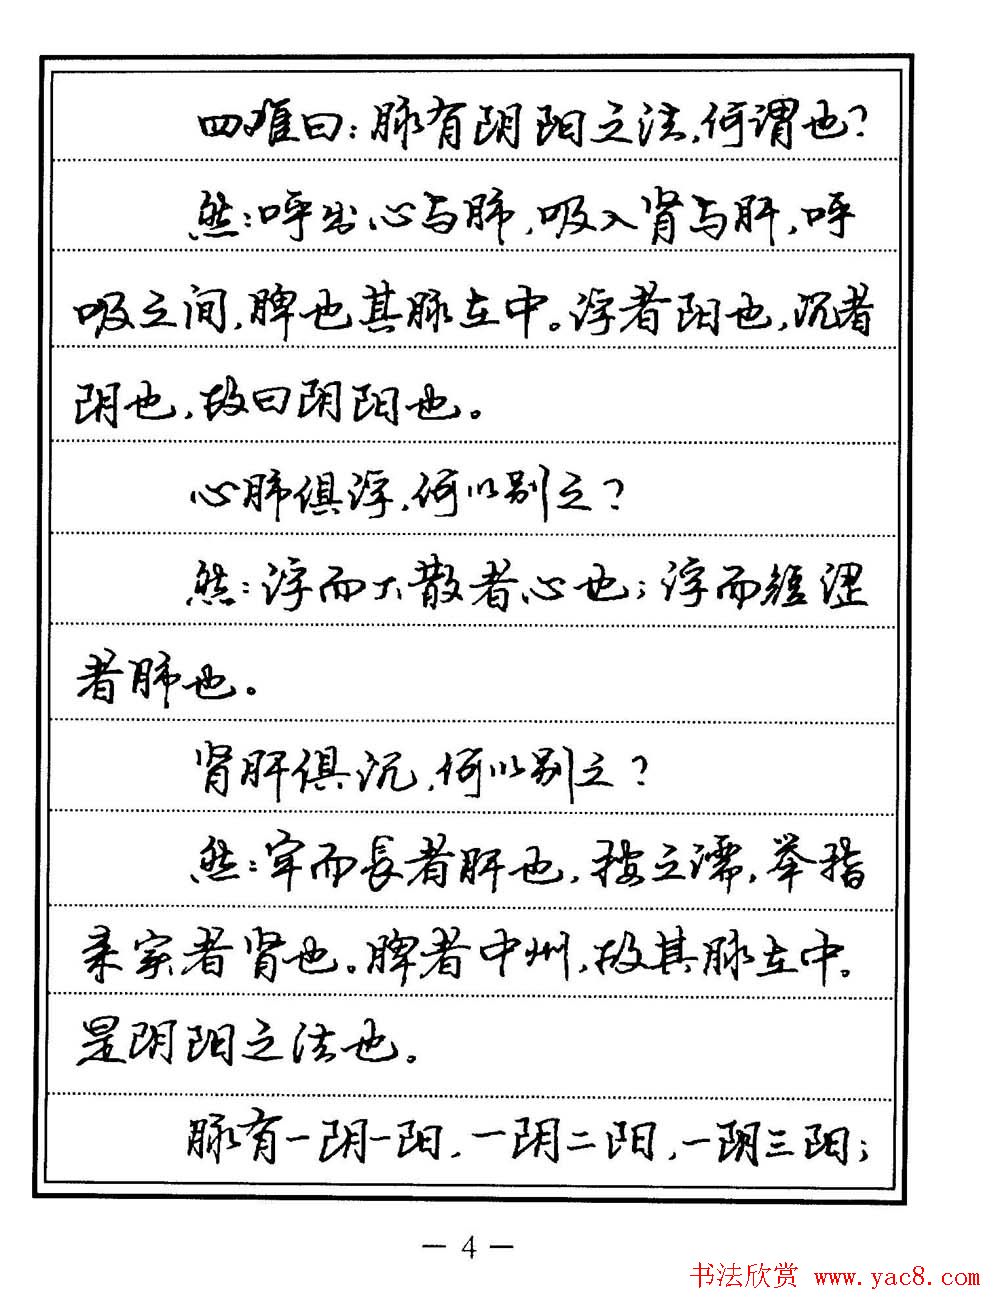 四难曰：脉有阴阳之法，何谓也？
然：呼出心与肺，吸入肾与肝，呼
吸之间，脾也其脉在中。浮者阳也，沉者
阴也，故曰阴阳也。
心肺俱浮，何以别之？
然：浮而大散者心也；浮而短涩
者肺也。
肾肝俱沉，何以别之？
然：牢而長者肝也，按之濡，举指
来实者肾也。脾者中州，故其脉在中。
是阴阳之法也。
脉有一阴一阳，一阴二阳，一阴三阳；
— 4 —
书法欣赏 www.yac8.com